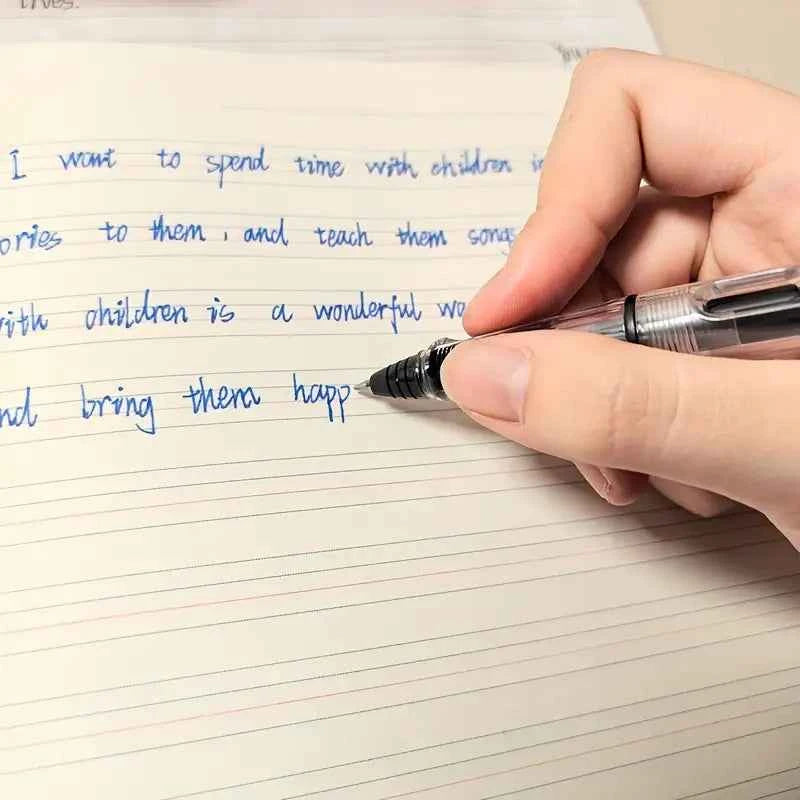 lives.
I want to spend time with children
ories to them, and teach them songs
with children is a wonderful
nd bring them happ